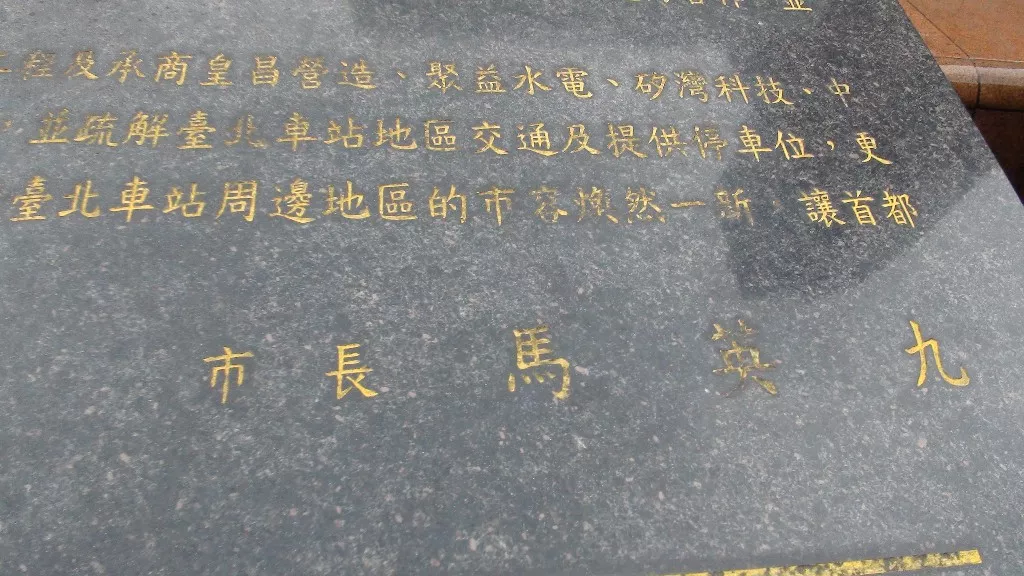 及承商皇昌營造、聚益水電、矽灣科技、中
，並疏解臺北車站地區交通及提供停車位，更
臺北車站周邊地區的市容煥然一新，讓首都
市長 馬英九